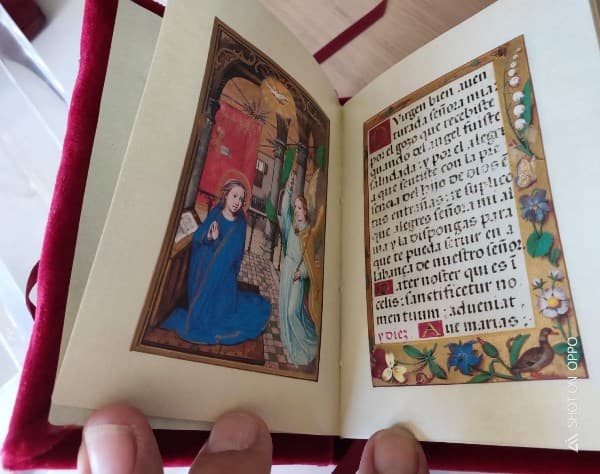 Virgen bien auen
turada señora mia:
por el gozo que recebiste
quando del angel fuiste
saludada: y por el alegri
a que sentiste con la pre
sencia del hijo de dios ē
tus entrañas: te suplico
que alegres señora mi al
ma y la dispongas para
que te pueda seruir en a
labança de nuestro señor.
Pater noster qui es ī
celis: sanctificetur no
men tuum: adueniat,
y diez. Aue marias:
SHOT ON OPPO